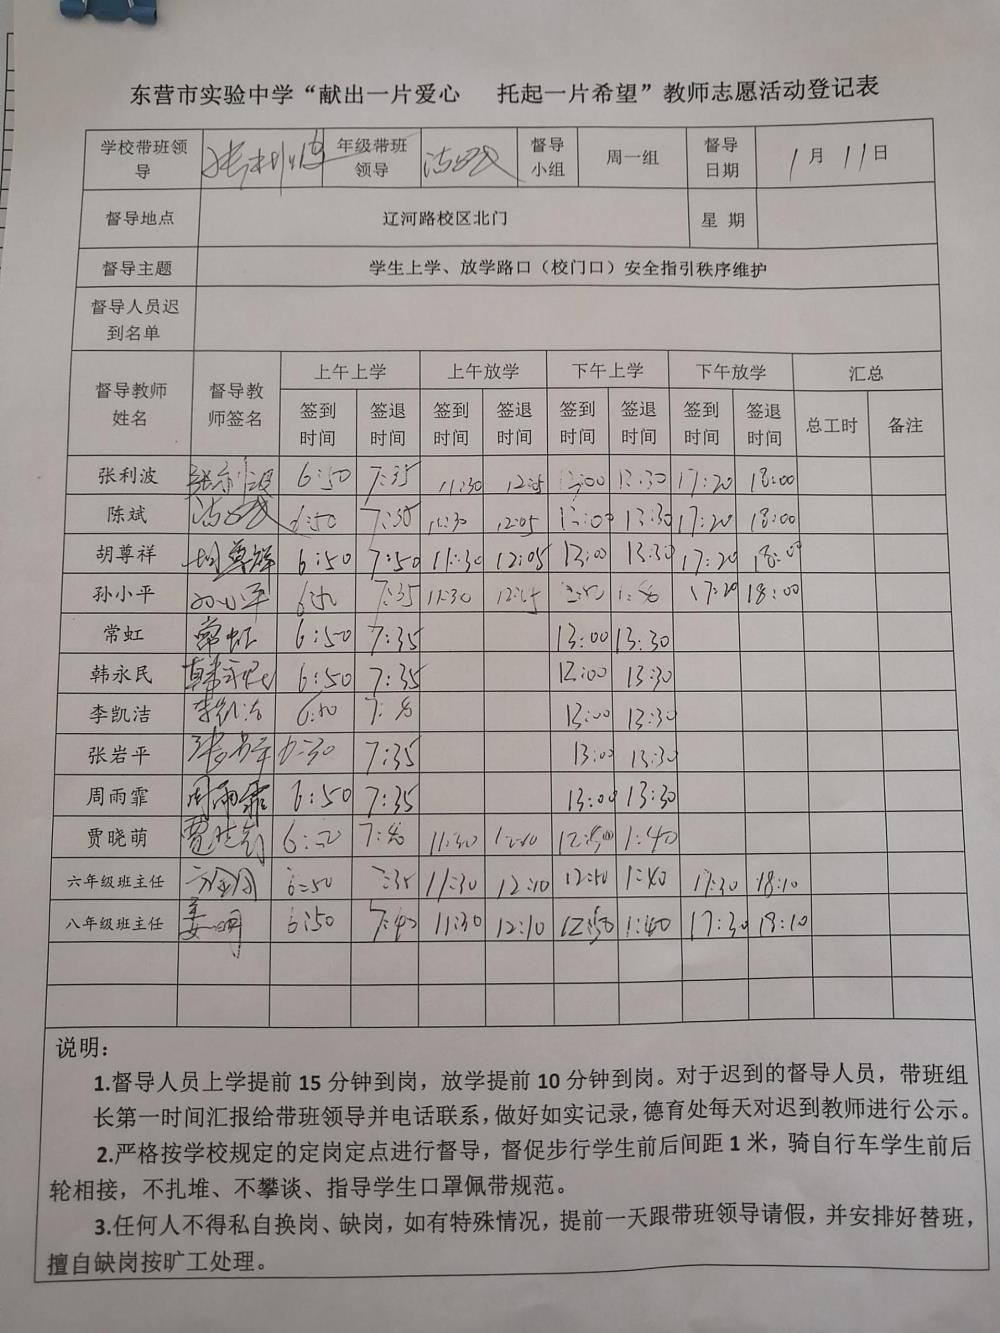 东营市实验中学“献出一片爱心 托起一片希望”教师志愿活动登记表
学校带班领导 张利波 年级带班领导 督导小组 周一组 督导日期 1月11日
督导地点 辽河路校区北门 星 期
督导主题 学生上学、放学路口（校门口）安全指引秩序维护
督导人员迟到名单
督导教师姓名 督导教师签名 上午上学 上午放学 下午上学 下午放学 汇总
签到时间 签退时间 签到时间 签退时间 签到时间 签退时间 签到时间 签退时间 总工时 备注
张利波 张利波 6:50 7:35 11:30 12:05 13:00 13:30 17:20 18:00
陈斌 6:50 7:35 11:30 12:05 13:00 13:30 17:20 18:00
胡尊祥 胡尊祥 6:50 7:50 11:30 12:05 13:00 13:30 17:20 18:00
孙小平 孙小平 6:50 7:35 11:30 12:05 17:20 18:00
常虹 常虹 6:50 7:35 13:00 13:30
韩永民 韩永民 6:50 7:35 13:00 13:30
李凯洁 李凯洁 13:00 13:30
张岩平 张岩平 6:30 7:35 13:00 13:30
周雨霏 周雨霏 6:50 7:35 13:00 13:30
贾晓萌 贾晓萌 11:30 12:10 12:50 1:40
六年级班主任 6:50 7:35 11:30 12:10 12:50 1:40 17:30 18:10
八年级班主任 姜明 6:50 7:40 11:30 12:10 12:50 1:40 17:30 18:10
说明：
1.督导人员上学提前 15 分钟到岗，放学提前 10 分钟到岗。对于迟到的督导人员，带班组
长第一时间汇报给带班领导并电话联系，做好如实记录，德育处每天对迟到教师进行公示。
2.严格按学校规定的定岗定点进行督导，督促步行学生前后间距 1 米，骑自行车学生前后
轮相接，不扎堆、不攀谈、指导学生口罩佩带规范。
3.任何人不得私自换岗、缺岗，如有特殊情况，提前一天跟带班领导请假，并安排好替班，
擅自缺岗按旷工处理。